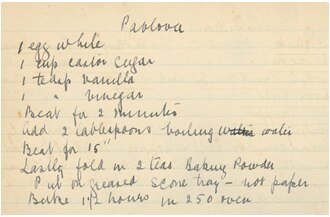 Pavlova
1 egg white
1 cup castor sugar
1 teasp vanilla
1 " vinegar
Beat for 2 minutes
add 2 tablespoons boiling water
Beat for 15"
Lastly fold in 2 teas Baking Powder
Put on greased scone tray - not paper
Bake 1½ hours in 250 oven